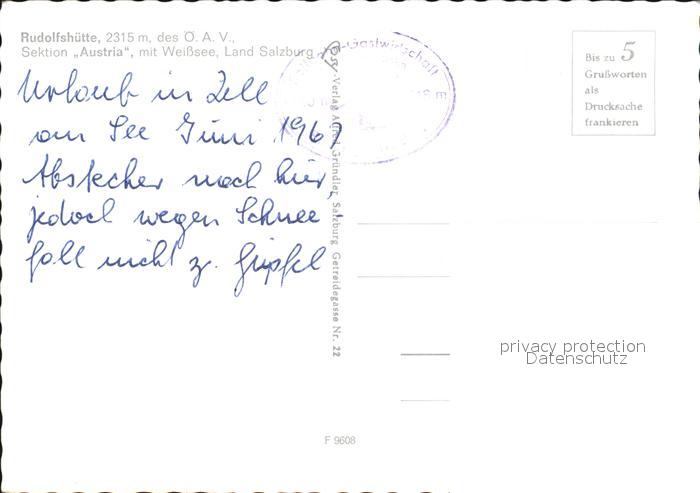 Rudolfshütte, 2315 m, des Ö. A. V.,
Sektion „Austria“, mit Weißsee, Land Salzburg
Urlaub in Zell
am See Juni 1967
Abstecher nach hier,
jedoch wegen Schnee
fall nicht z. Gipfel
-Gastwirtschaft
Verlag Alfred Gründler, Salzburg, Getreidegasse Nr. 22
Bis zu 5
Grußworten
als
Drucksache
frankieren
privacy protection
Datenschutz
F 9608